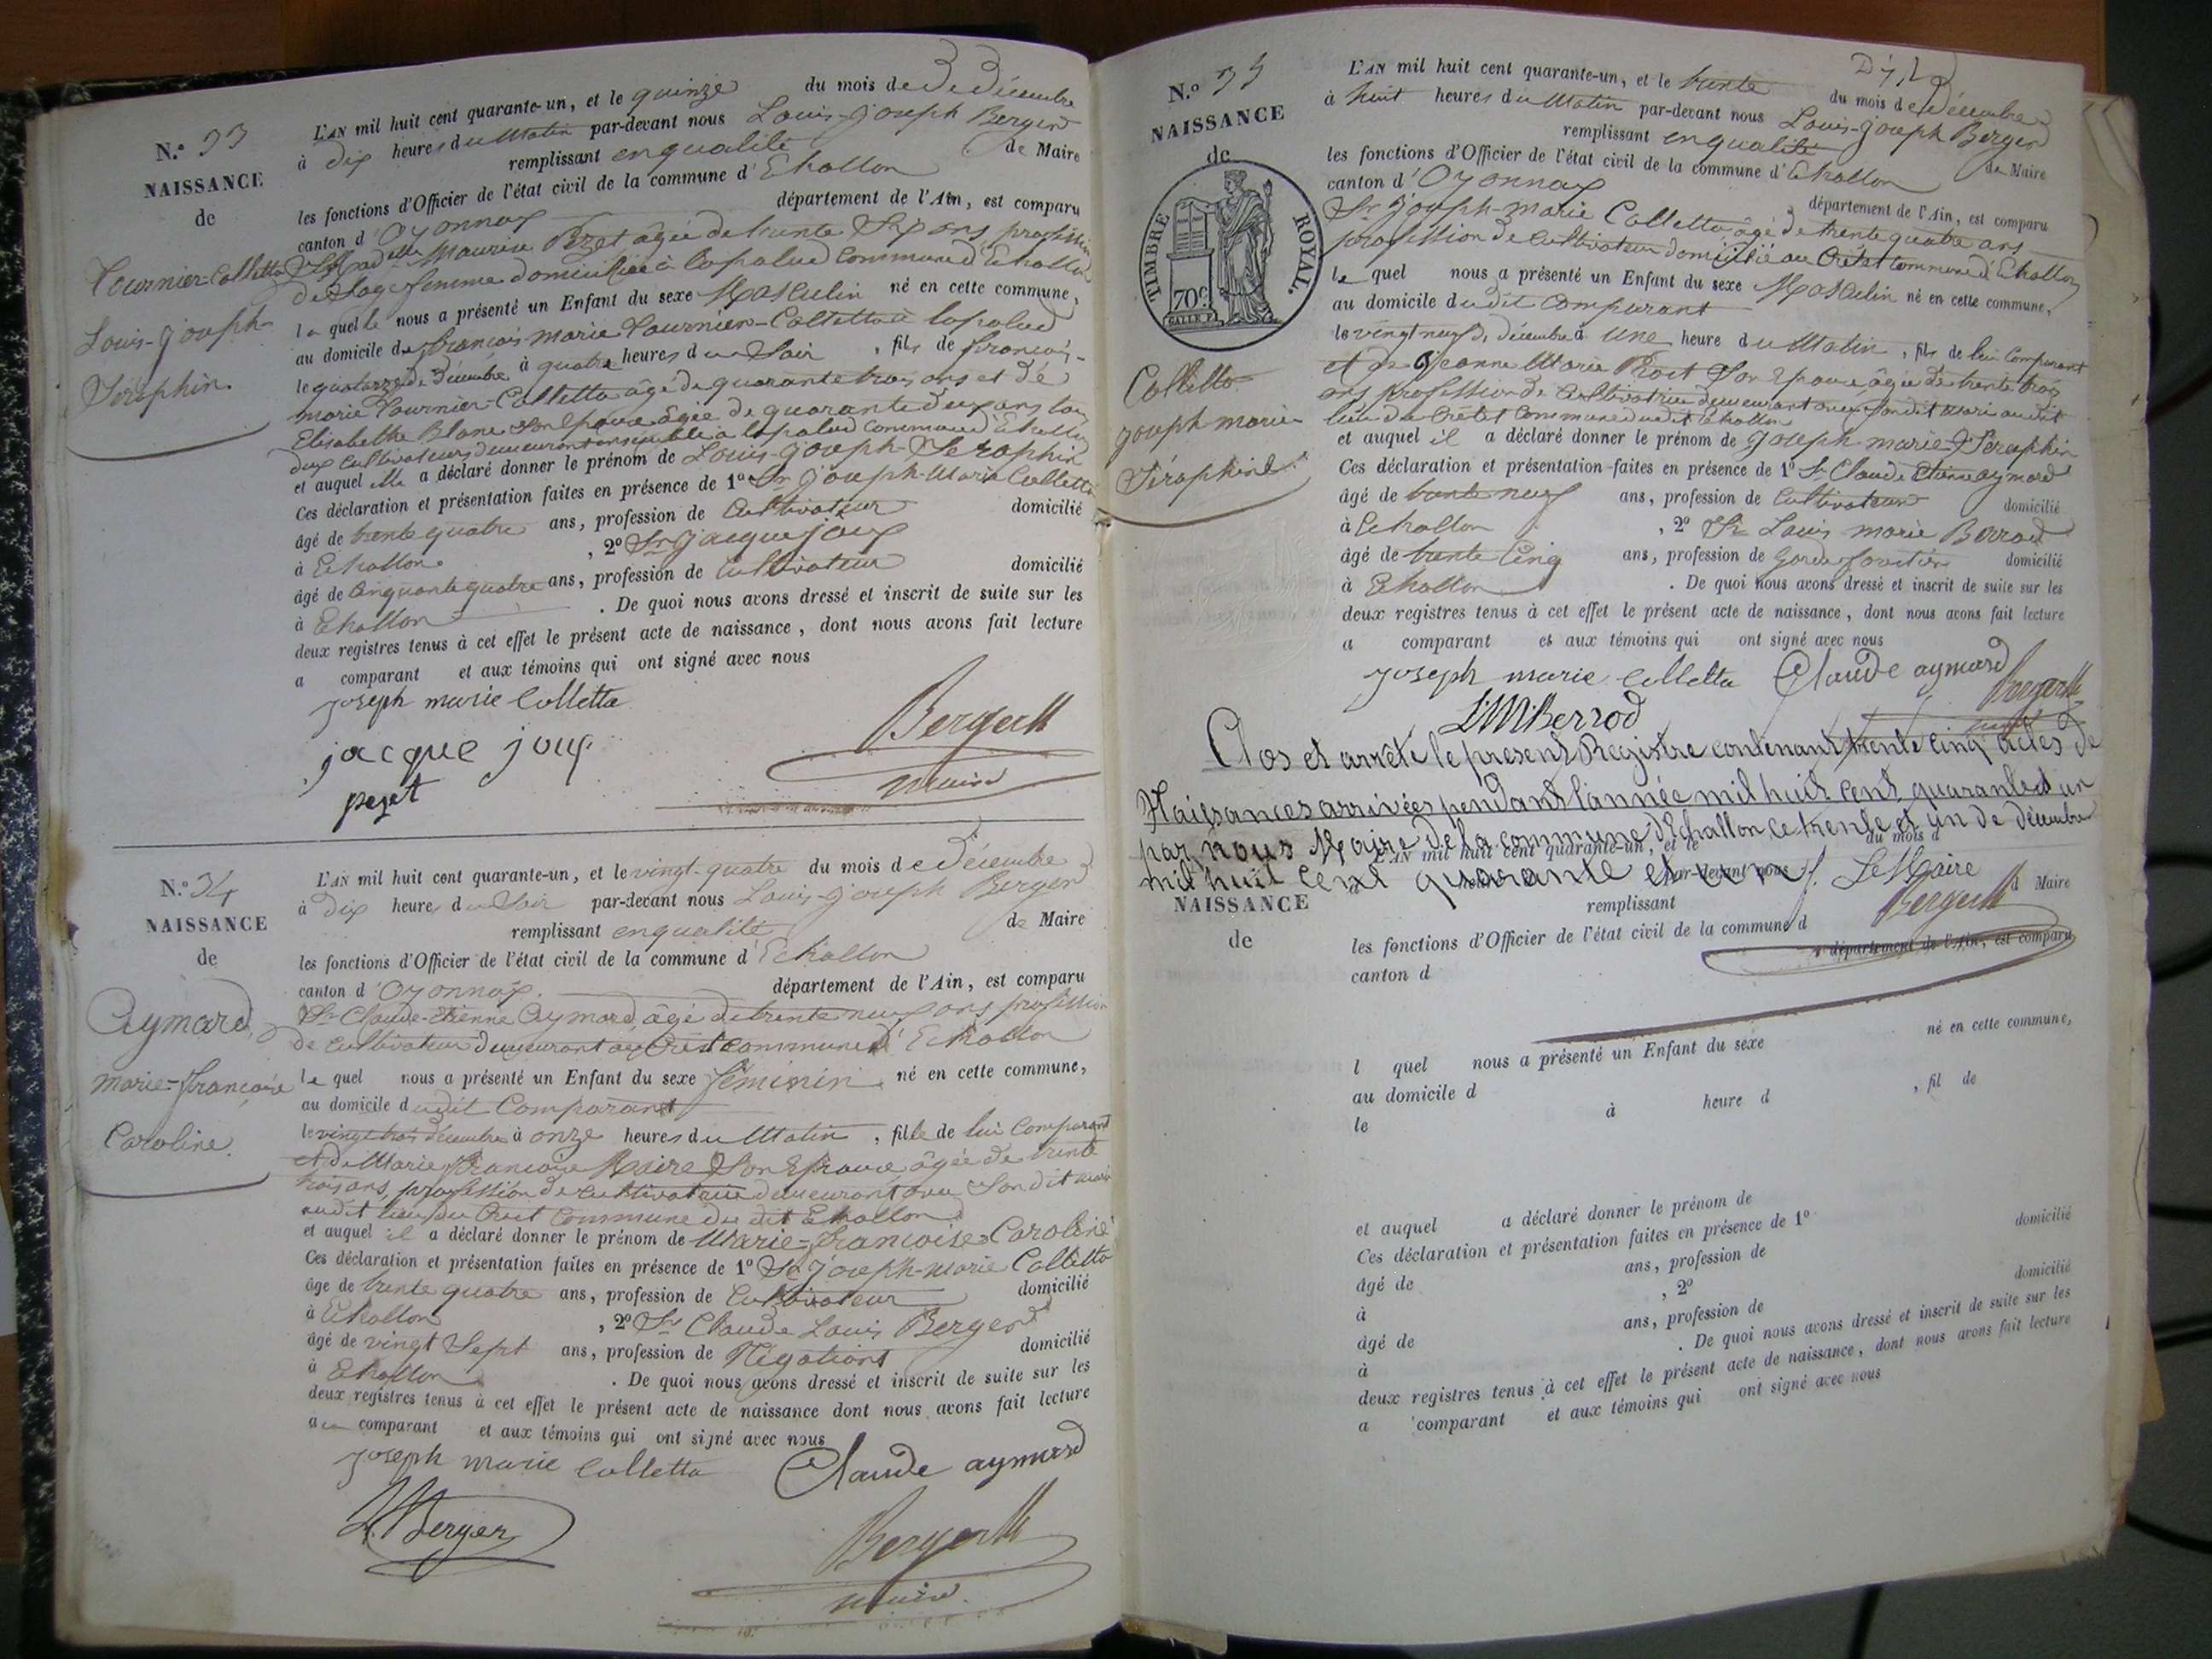 N.º 33
NAISSANCE
de
Tournier-Colletta
Louis-Joseph-
Séraphin.
L'AN mil huit cent quarante-un, et le quinze du mois de Décembre
à dix heures du Matin par-devant nous Louis-Joseph Berger
remplissant en qualité de Maire
les fonctions d'Officier de l'état civil de la commune d'Echallon
canton d'Oyonnax département de l'Ain, est comparu
Maurice âgée de trente Six ans profession
de Sage femme domiciliée à lapalud Commune d'Echallon
laquelle nous a présenté un Enfant du sexe Masculin né en cette commune,
au domicile de françois marie Tournier-Colletta à lapalud
le quatorze de Décembre à quatre heures du Soir, fils de françois-
marie Tournier-Colletta âgé de quarante trois ans et dé
Elisabethe Blanc Son Epouse âgée de quarante deux ans tous
deux Cultivateurs demeurant ensemble à lapalud Commune d'Echallon
et auquel elle a déclaré donner le prénom de Louis-Joseph-Séraphin
Ces déclaration et présentation faites en présence de 1º Sr Joseph-Marie Colletta
âgé de trente quatre ans, profession de Cultivateur domicilié
à Echallon, 2º Sr Jacque Joux
âgé de Cinquante quatre ans, profession de Cultivateur domicilié
à Echallon. De quoi nous avons dressé et inscrit de suite sur les
deux registres tenus à cet effet le présent acte de naissance, dont nous avons fait lecture
a comparant et aux témoins qui ont signé avec nous
joseph marie Colletta
jacque joux Berger
pezet maire
N.º 34
NAISSANCE
de
Aymard,
marie-françoise
Caroline.
L'AN mil huit cent quarante-un, et le vingt-quatre du mois de Décembre
à dix heures du Soir par-devant nous Louis-Joseph Berger
remplissant en qualité de Maire
les fonctions d'Officier de l'état civil de la commune d'Echallon
canton d'Oyonnax. département de l'Ain, est comparu
Sr Claude-Etienne Aymard, âgé de trente neuf ans profession
de Cultivateur demeurant au Crêt Commune d'Echallon
lequel nous a présenté un Enfant du sexe féminin né en cette commune,
au domicile dudit Comparant
le vingt trois décembre à onze heures du Matin, fille de lui Comparant
et de Marie françoise Maire Son Epouse âgée de trente
trois ans, profession de Cultivatrice demeurant avec Son dit mari
audit lieu du Crêt Commune du dit Echallon
et auquel il a déclaré donner le prénom de Marie-françoise-Caroline
Ces déclaration et présentation faites en présence de 1º Sr Joseph-Marie Colletta
âgé de trente quatre ans, profession de Cultivateur domicilié
à Echallon, 2º Sr Claude Louis Berger
âgé de vingt Sept ans, profession de Négotiant domicilié
à Echallon. De quoi nous avons dressé et inscrit de suite sur les
deux registres tenus à cet effet le présent acte de naissance dont nous avons fait lecture
au comparant et aux témoins qui ont signé avec nous
joseph marie Colletta Claude aymard
Berger Berger
maire.
N.º 35
NAISSANCE
de
TIMBRE ROYAL.
70c
Colletta
joseph marie-
Séraphin
L'AN mil huit cent quarante-un, et le trente du mois de Décembre
à huit heures du Matin par-devant nous Louis-Joseph Berger
remplissant en qualité de Maire
les fonctions d'Officier de l'état civil de la commune d'Echallon
canton d'Oyonnax département de l'Ain, est comparu
Sr Joseph-marie Colletta, âgé de trente quatre ans
profession de Cultivateur domicilié au Crêtet Commune d'Echallon
lequel nous a présenté un Enfant du sexe Masculin né en cette commune,
au domicile dudit Comparant
le vingt neuf de décembre à une heure du Matin, fils de lui Comparant
et de Jeanne Marie Son Epouse âgée de trente trois
ans profession de Cultivatrice demeurant avec Son dit mari au dit
lieu du Crêtet Commune dudit Echallon
et auquel il a déclaré donner le prénom de joseph-marie-Séraphin
Ces déclaration et présentation faites en présence de 1º Sr Claude Etienne Aymard
âgé de trente neuf ans, profession de Cultivateur domicilié
à Echallon, 2º Sr Louis marie Berrod
âgé de trente Cinq ans, profession de Garde forestier domicilié
à Echallon. De quoi nous avons dressé et inscrit de suite sur les
deux registres tenus à cet effet le présent acte de naissance, dont nous avons fait lecture
a comparant et aux témoins qui ont signé avec nous
joseph marie Colletta Claude aymard
LMBerrod Berger
Clos et arrêté le present Registre contenant trente cinq actes de
Naissances arrivées pendant l'année mil huit cent quarante et un
par nous Maire de la commune d'Echallon ce trente et un de décembre
mil huit cent quarante et un. Le Maire
Berger
L'AN mil huit cent quarante-un, et le du mois d
par-devant nous
NAISSANCE
de
remplissant d Maire
les fonctions d'Officier de l'état civil de la commune d
canton d département de l'Ain, est comparu
l quel nous a présenté un Enfant du sexe né en cette commune,
au domicile d
le à heure d, fil de
et auquel a déclaré donner le prénom de
Ces déclaration et présentation faites en présence de 1º
âgé de ans, profession de domicilié
à, 2º
âgé de ans, profession de domicilié
à. De quoi nous avons dressé et inscrit de suite sur les
deux registres tenus à cet effet le présent acte de naissance, dont nous avons fait lecture
a comparant et aux témoins qui ont signé avec nous